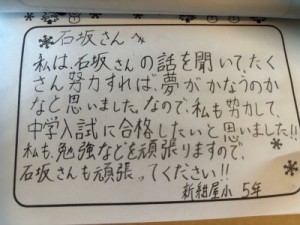 石坂さんへ
私は、石坂さんの話を聞いて、たく
さん努力すれば、夢がかなうのか
なと思いました。なので、私も努力して、
中学入試に合格したいと思いました!!
私も、勉強などを頑張りますので、
石坂さんも頑張ってください!!
新紺屋小 5年